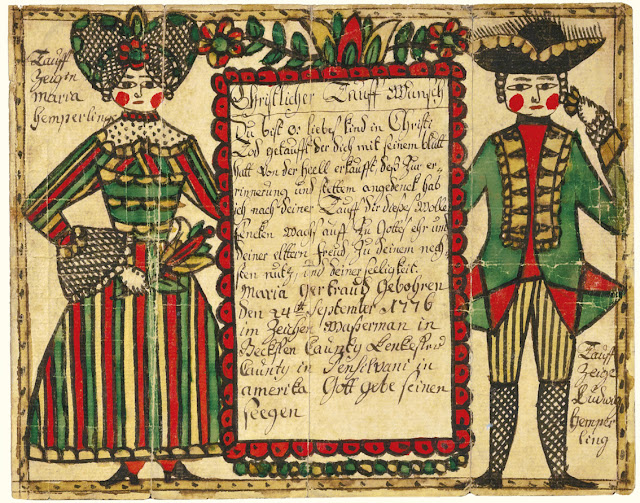 Tauff
Zeugin
Maria
Hemperling
Christlicher Tauff Wunsch
Du bist o liebes kind in Christi
Tod getaufft der dich mit seinem blutt
hatt von der heell erkaufft, deß Zur er¬
innerung und stettem angedenck hab
ich nach deiner Tauff dir dießes Wolle
Wachs auff Zu Gottes ehr und
deiner elttern freud, Zu deinem nech¬
sten nutz und deiner seeligkeit.
Maria Gertraud Gebohren
den 24th September 1776
im Zeichen Waßerman in
Caunty
Caunty in Pensilvani in
amerika Gott gebe seinen
seegen
Tauff
Zeige
Ludwig
Hemper
ling